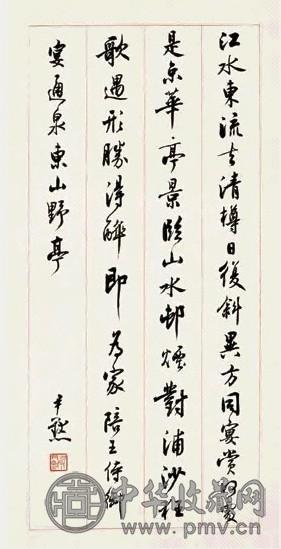 江水東流去清樽日復斜異方同宴賞何處
是京華亭景臨山水邨煙對浦沙狂
歌遇形勝得醉即為家陪王侍御
宴通泉東山野亭
尹默
中华收藏网
www.pmv.cn